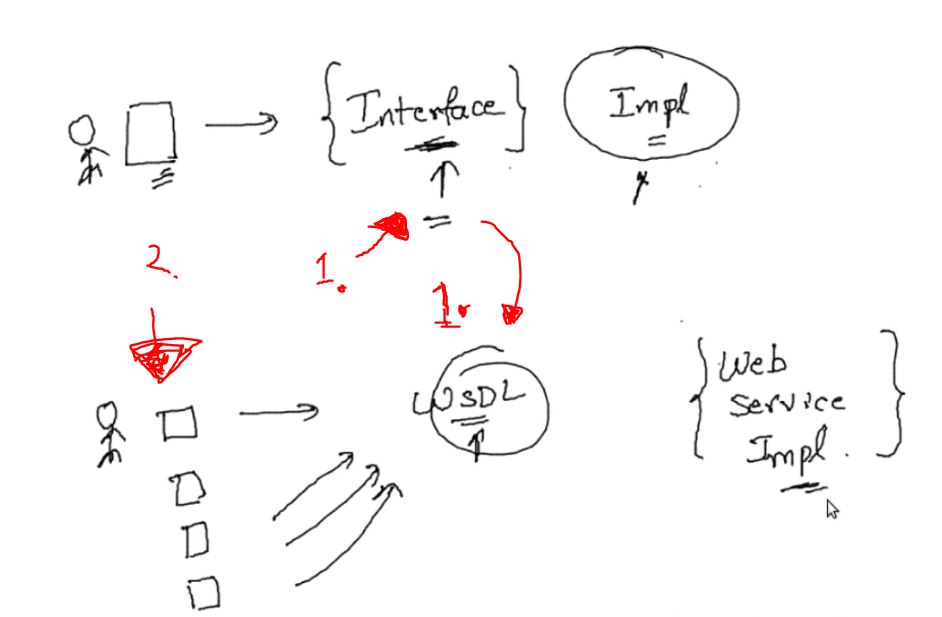 { Interface }
Impl
2.
1.
1.
WSDL
{ Web
Service
Impl. }